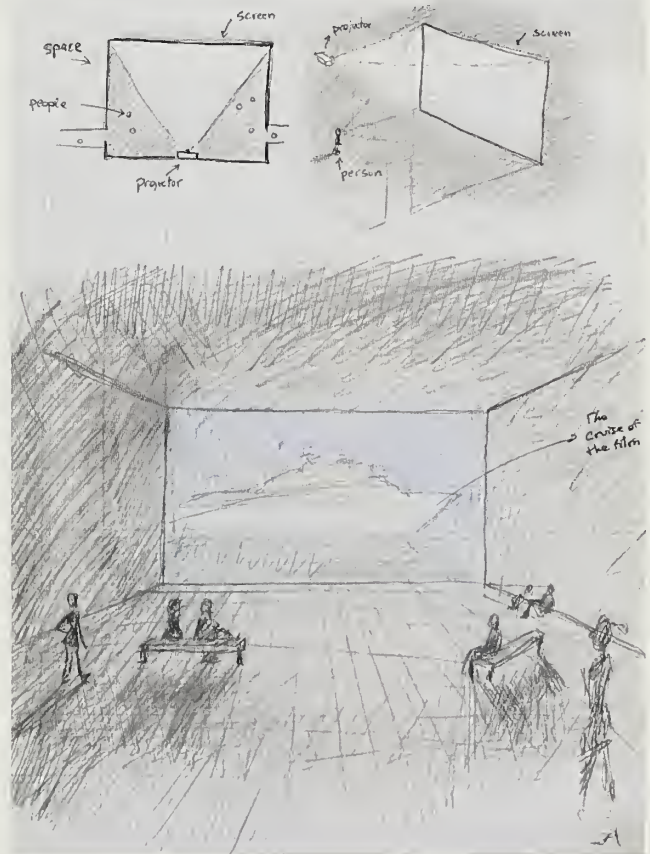 screen
space
people
projector
projector
screen
person
The
cruise of
the film